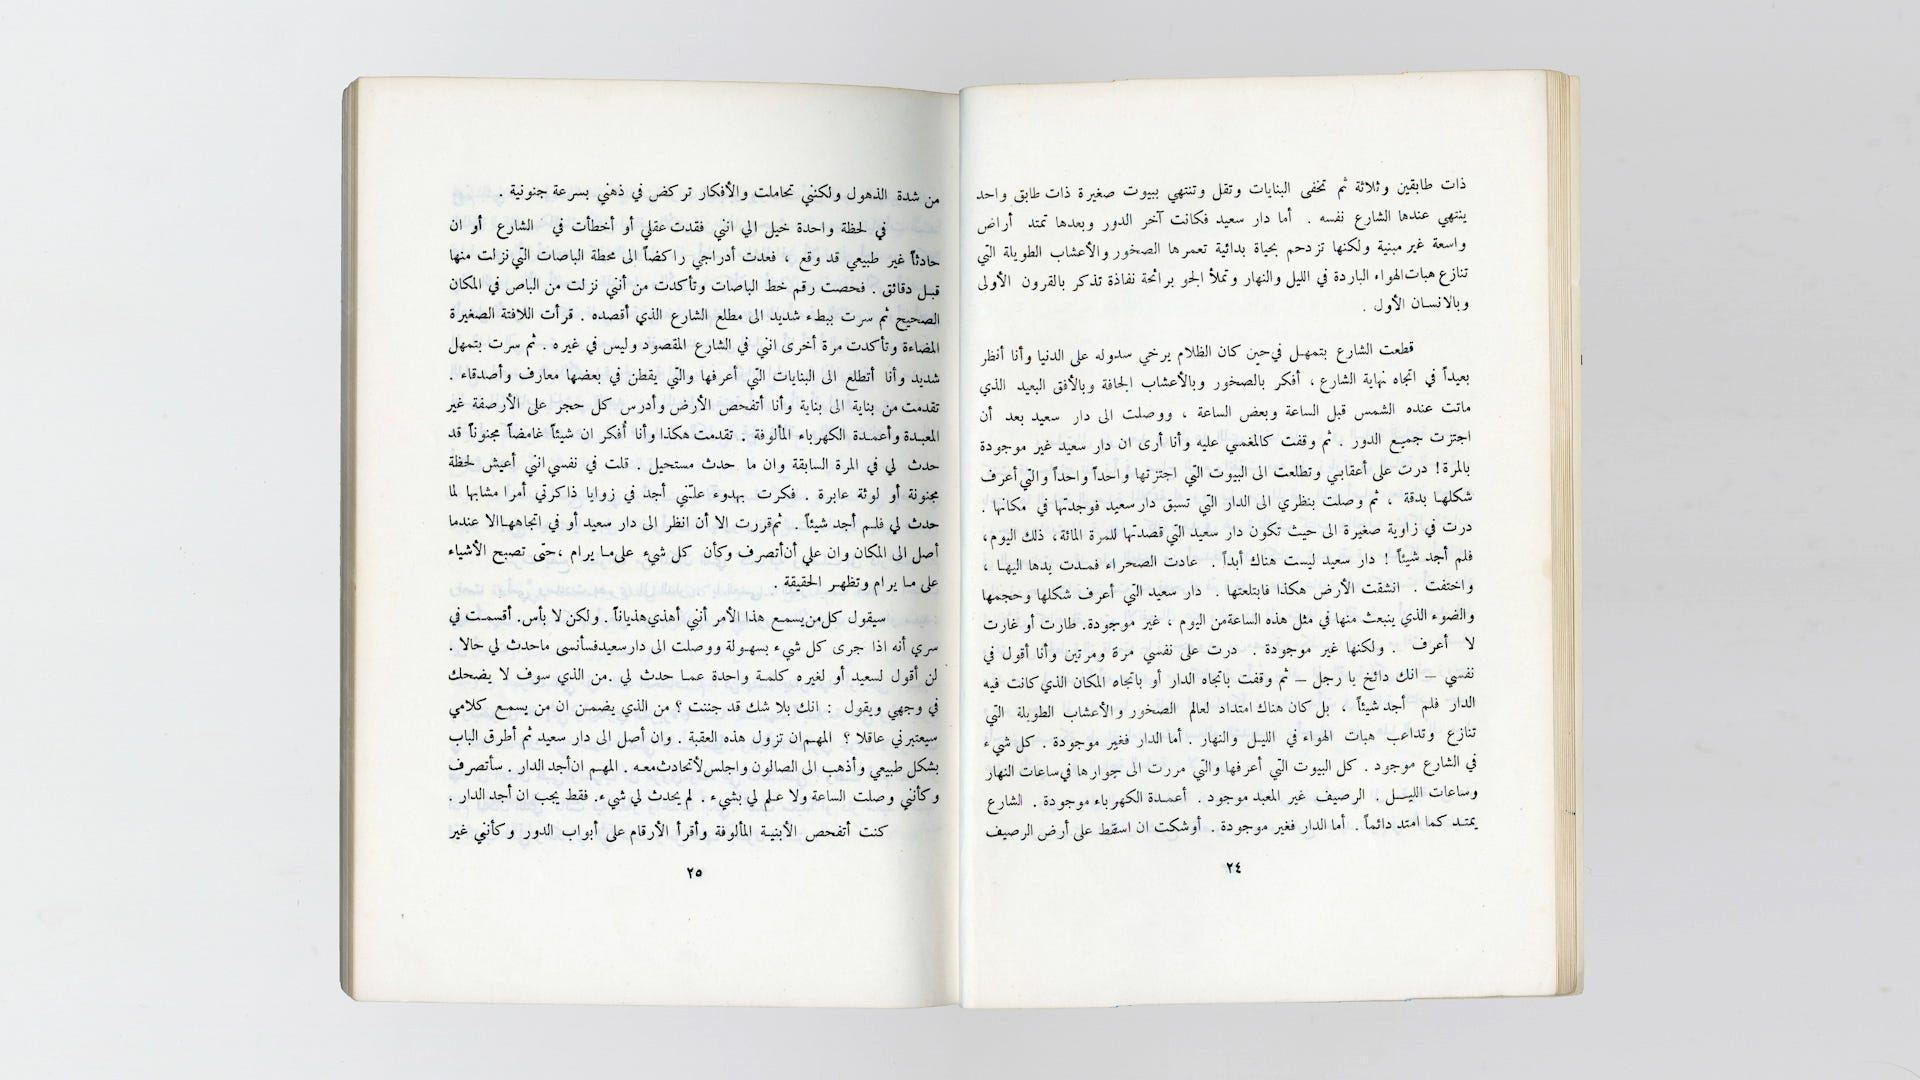 ذات طابقين وثلاثة ثم تخفى البنايات وتقل وتنتهي ببيوت صغيرة ذات طابق واحد
ينتهي عندها الشارع نفسه . أما دار سعيد فكانت آخر الدور وبعدها تمتد أراض
واسعة غير مبنية ولكنها تزدحم بحياة بدائية تعمرها الصخور والأعشاب الطويلة التي
تنازع هبات الهواء الباردة في الليل والنهار وتملأ الجو برائحة نفاذة تذكر بالقرون الأولى
وبالانسان الأول .
قطعت الشارع بتمهل في حين كان الظلام يرخي سدوله على الدنيا وأنا أنظر
بعيداً في اتجاه نهاية الشارع ، أفكر بالصخور وبالأعشاب الجافة وبالأفق البعيد الذي
ماتت عنده الشمس قبل الساعة وبعض الساعة ، ووصلت الى دار سعيد بعد أن
اجتزت جميع الدور . ثم وقفت كالمغمي عليه وأنا أرى ان دار سعيد غير موجودة
بالمرة ! درت على أعقابي وتطلعت الى البيوت التي اجتزتها واحداً واحداً والتي أعرف
شكلها بدقة ، ثم وصلت بنظري الى الدار التي تسبق دار سعيد فوجدتها في مكانها .
درت في زاوية صغيرة الى حيث تكون دار سعيد التي قصدتها للمرة المائة ، ذلك اليوم ،
فلم أجد شيئاً ! دار سعيد ليست هناك أبداً . عادت الصحراء فمدت يدها اليها ،
واختفت . انشقت الأرض هكذا فابتلعتها . دار سعيد التي أعرف شكلها وحجمها
والضوء الذي ينبعث منها في مثل هذه الساعة من اليوم ، غير موجودة . طارت أو غارت
لا أعرف . ولكنها غير موجودة . درت على نفسي مرة ومرتين وأنا أقول في
نفسي — انك دائخ يا رجل — ثم وقفت باتجاه الدار أو باتجاه المكان الذي كانت فيه
الدار فلم أجد شيئاً ، بل كان هناك امتداد لعالم الصخور والأعشاب الطويلة التي
تنازع وتداعب هبات الهواء في الليل والنهار . أما الدار فغير موجودة . كل شيء
في الشارع موجود . كل البيوت التي أعرفها والتي مررت الى جوارها في ساعات النهار
وساعات الليل . الرصيف غير المعبد موجود . أعمدة الكهرباء موجودة . الشارع
يمتد كما امتد دائماً . أما الدار فغير موجودة . أوشكت ان اسقط على أرض الرصيف
٢٤
من شدة الذهول ولكنني تحاملت والأفكار تركض في ذهني بسرعة جنونية .
في لحظة واحدة خيل الي انني فقدت عقلي أو أخطأت في الشارع أو ان
حادثاً غير طبيعي قد وقع ، فعدت أدراجي راكضاً الى محطة الباصات التي نزلت منها
قبل دقائق . فحصت رقم خط الباصات وتأكدت من أنني نزلت من الباص في المكان
الصحيح ثم سرت ببطء شديد الى مطلع الشارع الذي أقصده . قرأت اللافتة الصغيرة
المضاءة وتأكدت مرة أخرى انني في الشارع المقصود وليس في غيره . ثم سرت بتمهل
شديد وأنا أتطلع الى البنايات التي أعرفها والتي يقطن في بعضها معارف وأصدقاء .
تقدمت من بناية الى بناية وأنا أتفحص الأرض وأدرس كل حجر على الأرصفة غير
المعبدة وأعمدة الكهرباء المألوفة . تقدمت هكذا وأنا أُفكر ان شيئاً غامضاً مجنوناً قد
حدث لي في المرة السابقة وان ما حدث مستحيل . قلت في نفسي انني أعيش لحظة
مجنونة أو لوثة عابرة . فكرت بهدوء علني أجد في زوايا ذاكرتي أمرا مشابها لما
حدث لي فلم أجد شيئاً . ثم قررت الا أن انظر الى دار سعيد أو في اتجاهها الا عندما
أصل الى المكان وان علي أن أتصرف وكأن كل شيء على ما يرام ، حتى تصبح الأشياء
على ما يرام وتظهر الحقيقة .
سيقول كل من يسمع هذا الأمر أنني أهذي هذياناً . ولكن لا بأس . أقسمت في
سري أنه اذا جرى كل شيء بسهولة ووصلت الى دار سعيد فسأنسى ما حدث لي حالا .
لن أقول لسعيد أو لغيره كلمة واحدة عما حدث لي . من الذي سوف لا يضحك
في وجهي ويقول : انك بلا شك قد جننت ؟ من الذي يضمن ان من يسمع كلامي
سيعتبرني عاقلا ؟ المهم ان تزول هذه العقبة . وان أصل الى دار سعيد ثم أطرق الباب
بشكل طبيعي وأذهب الى الصالون واجلس لأتحادث معه . المهم ان أجد الدار . سأتصرف
وكأنني وصلت الساعة ولا علم لي بشيء . لم يحدث لي شيء . فقط يجب ان أجد الدار .
كنت أتفحص الأبنية المألوفة وأقرأ الأرقام على أبواب الدور وكأنني غير
٢٥